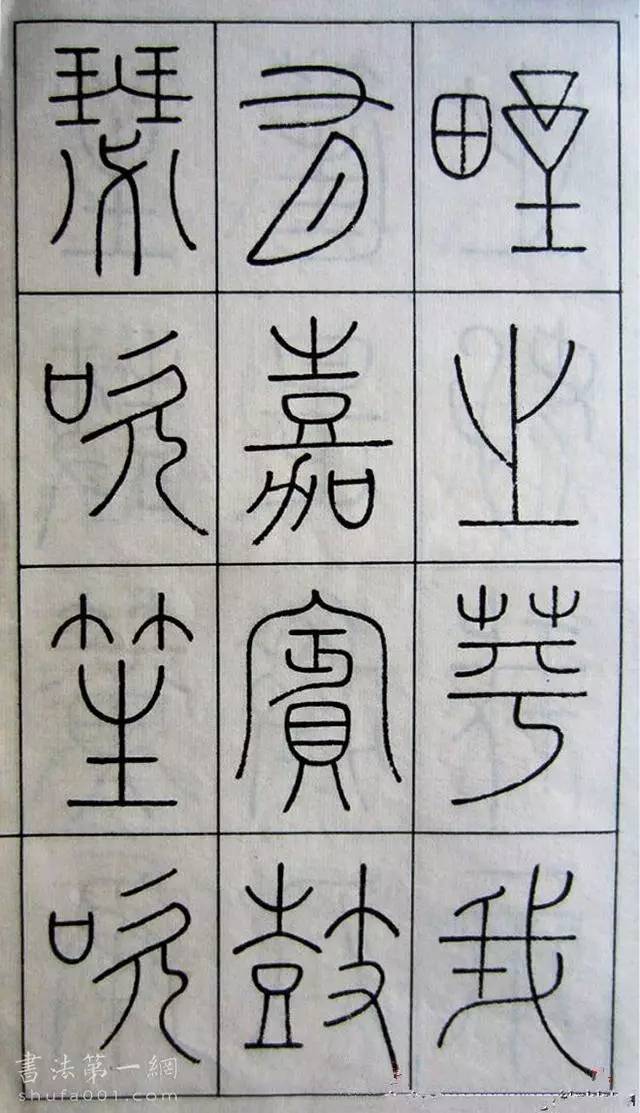 野之苹我
有嘉賓鼓
瑟吹笙吹
書法第一網
shufa001.com